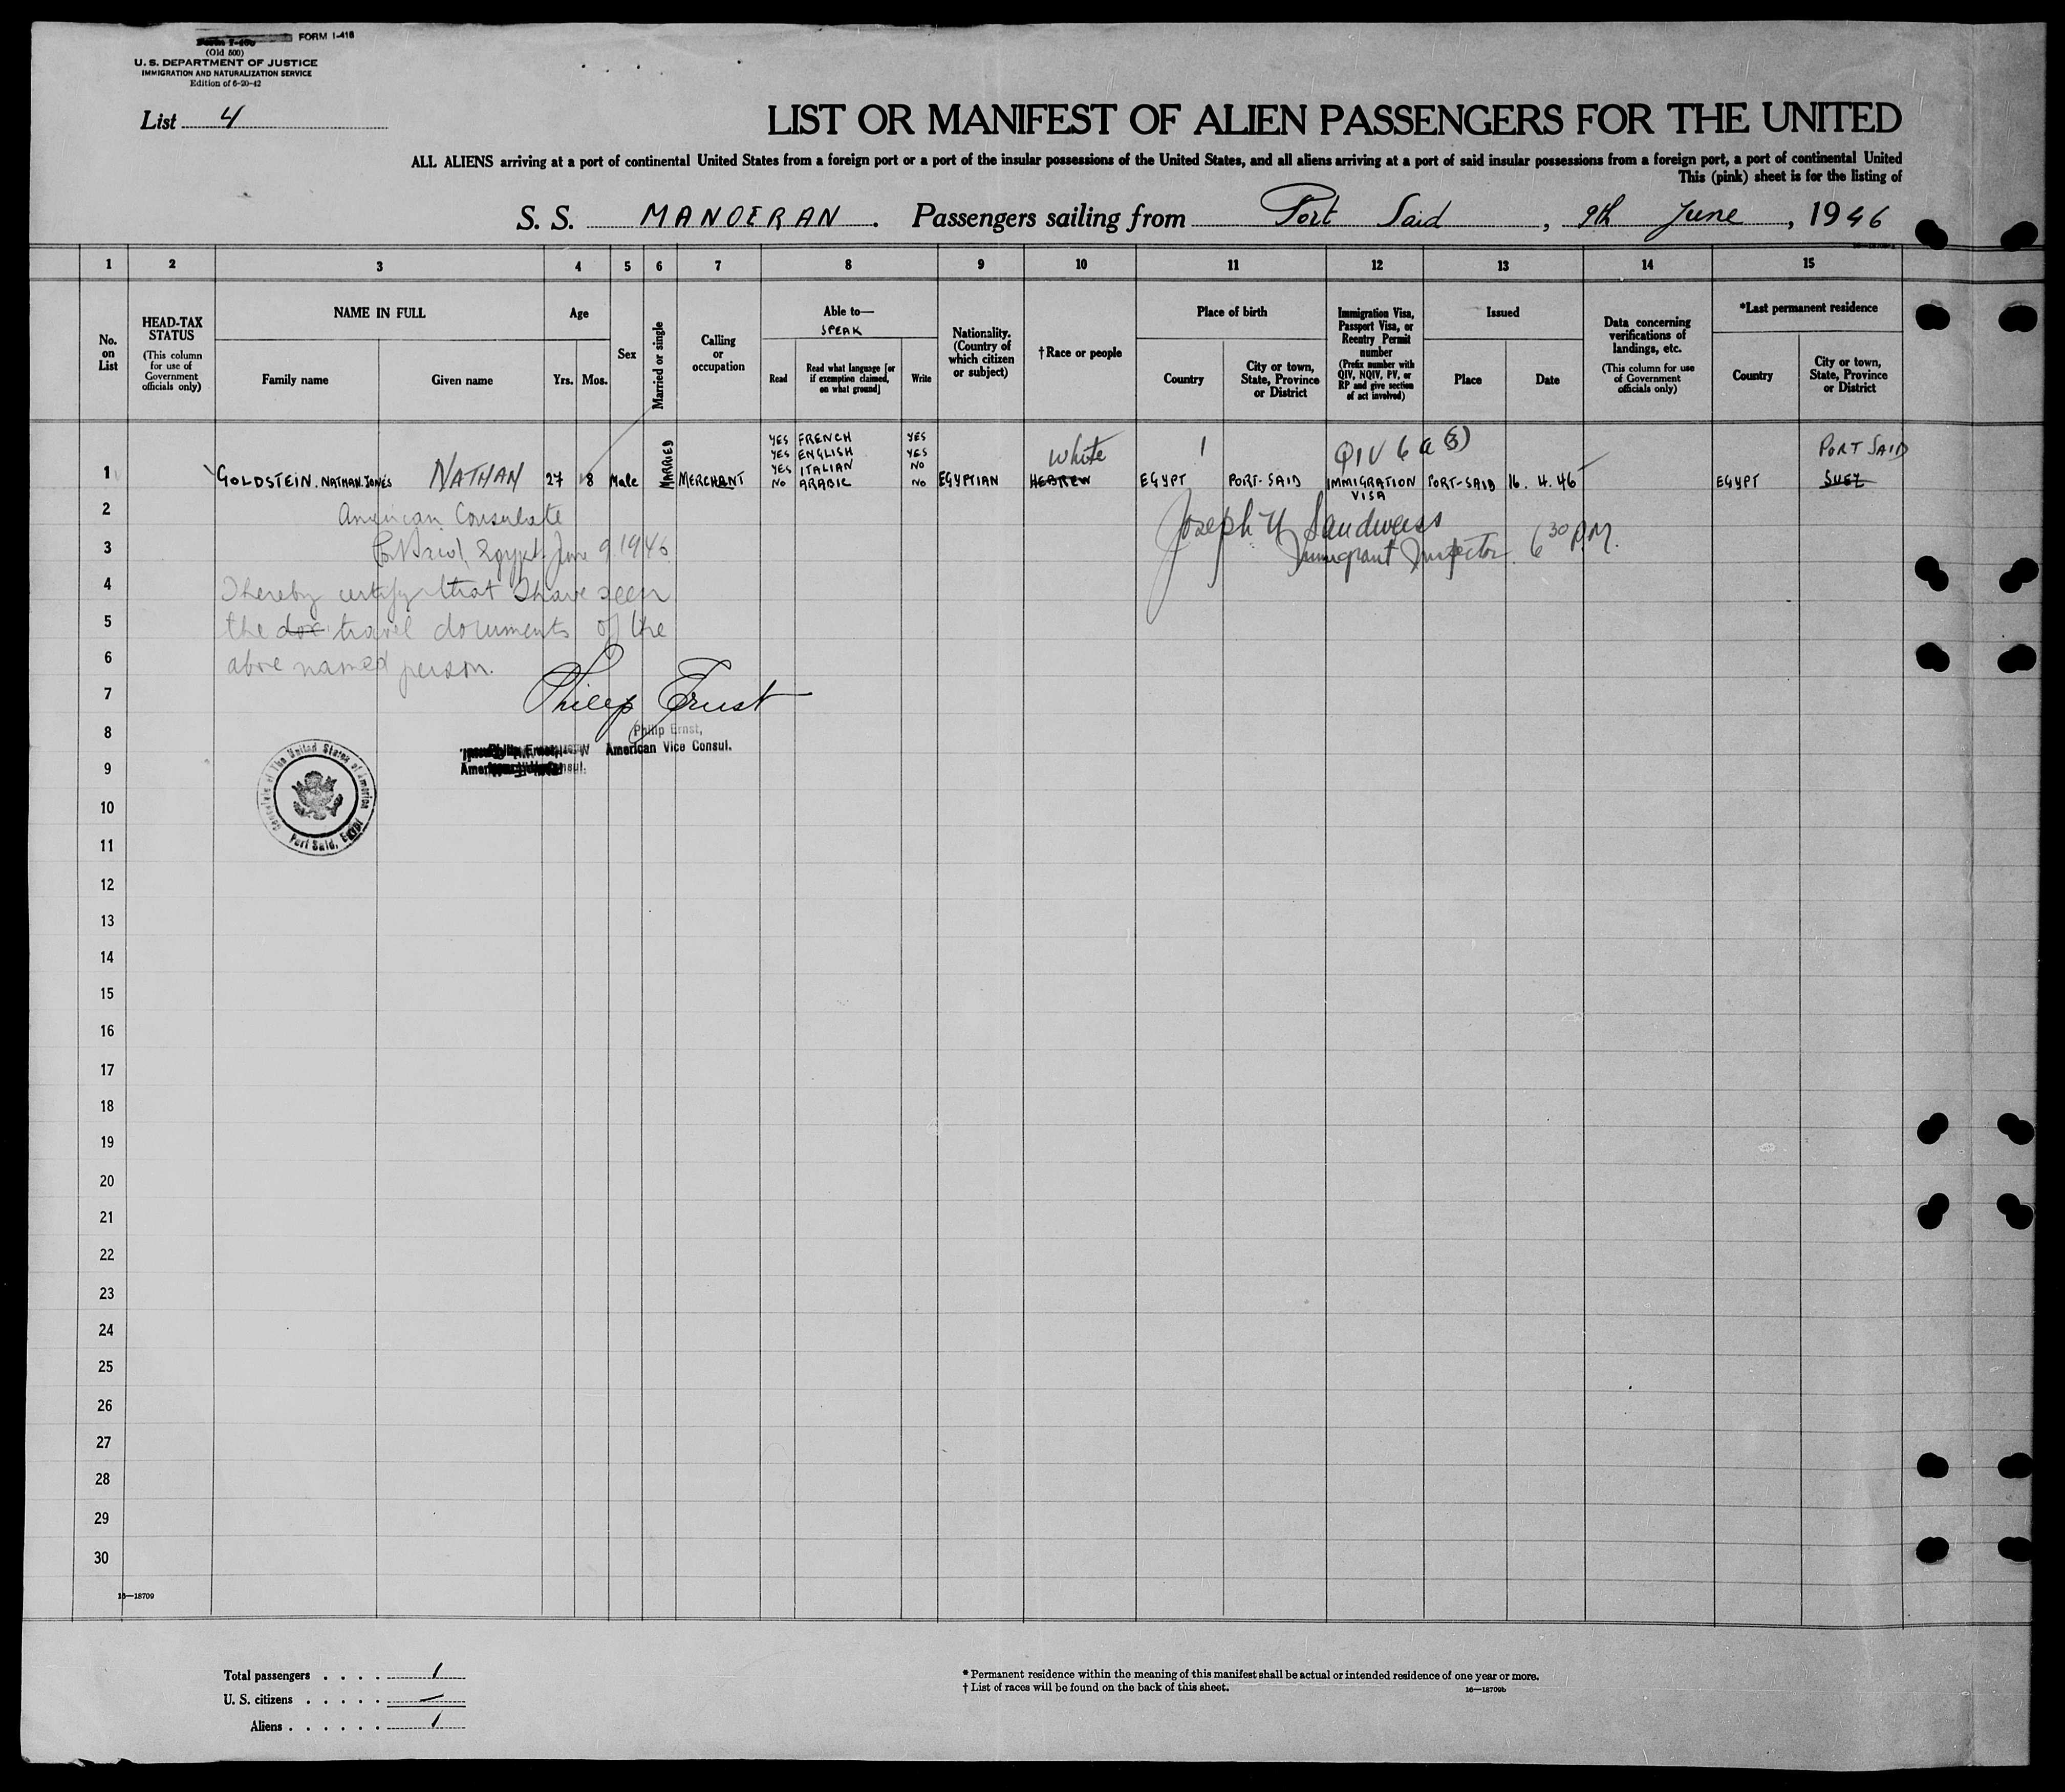 FORM I-418
(Old 500)
U. S. DEPARTMENT OF JUSTICE
IMMIGRATION AND NATURALIZATION SERVICE
Edition of 6-20-42
List 4
LIST OR MANIFEST OF ALIEN PASSENGERS FOR THE UNITED
ALL ALIENS arriving at a port of continental United States from a foreign port or a port of the insular possessions of the United States, and all aliens arriving at a port of said insular possessions from a foreign port, a port of continental United
This (pink) sheet is for the listing of
S. S. MANOERAN. Passengers sailing from Port Said, 9th June, 1946
1 2 3 4 5 6 7 8 9 10 11 12 13 14 15
No. on List
HEAD-TAX STATUS
(This column for use of Government officials only)
NAME IN FULL
Family name
Given name
Age
Yrs. Mos.
Sex
Married or single
Calling or occupation
Able to—
SPEAK
Read
Read what language [or if exemption claimed, on what ground]
Write
Nationality. (Country of which citizen or subject)
†Race or people
Place of birth
Country
City or town, State, Province or District
Immigration Visa, Passport Visa, or Reentry Permit number
(Prefix number with QIV, NQIV, PV, or RP and give section of act involved)
Issued
Place
Date
Data concerning verifications of landings, etc.
(This column for use of Government officials only)
*Last permanent residence
Country
City or town, State, Province or District
YES FRENCH YES
YES ENGLISH YES
YES ITALIAN NO
NO ARABIC NO
White
1
QIV 6 a (3)
PORT SAID
1 GOLDSTEIN. NATHAN. JONES NATHAN 27 8 Male MARRIED MERCHANT EGYPTIAN HEBREW EGYPT PORT-SAID IMMIGRATION VISA PORT-SAID 16. 4. 46 EGYPT SUEZ
2 American Consulate
Joseph Sandweiss
3 Port Said, Egypt. June 9 1946
Immigrant Inspector. 6 30 P.M.
4 I hereby certify that I have seen
5 the doc travel documents of the
6 above named person.
7 Philip Ernst
8 Philip Ernst,
American Vice Consul.
9
10
11
12
13
14
15
16
17
18
19
20
21
22
23
24
25
26
27
28
29
30
Consulate of The United States of America
Port Said, Egypt
16—18709
Total passengers . . . . 1
U. S. citizens . . . . . —
Aliens . . . . . . 1
* Permanent residence within the meaning of this manifest shall be actual or intended residence of one year or more.
† List of races will be found on the back of this sheet.
16—18709b